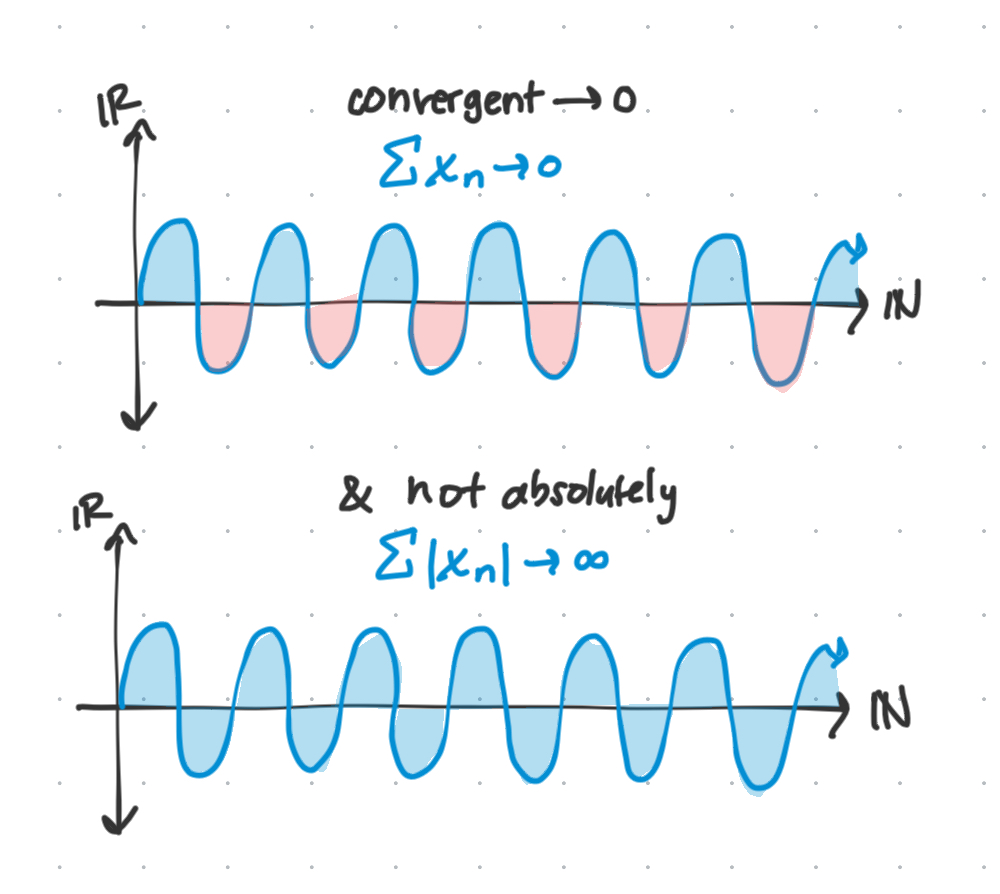 convergent → 0
ℝ
∑xₙ → 0
ℕ
& not absolutely
ℝ
∑|xₙ| → ∞
ℕ